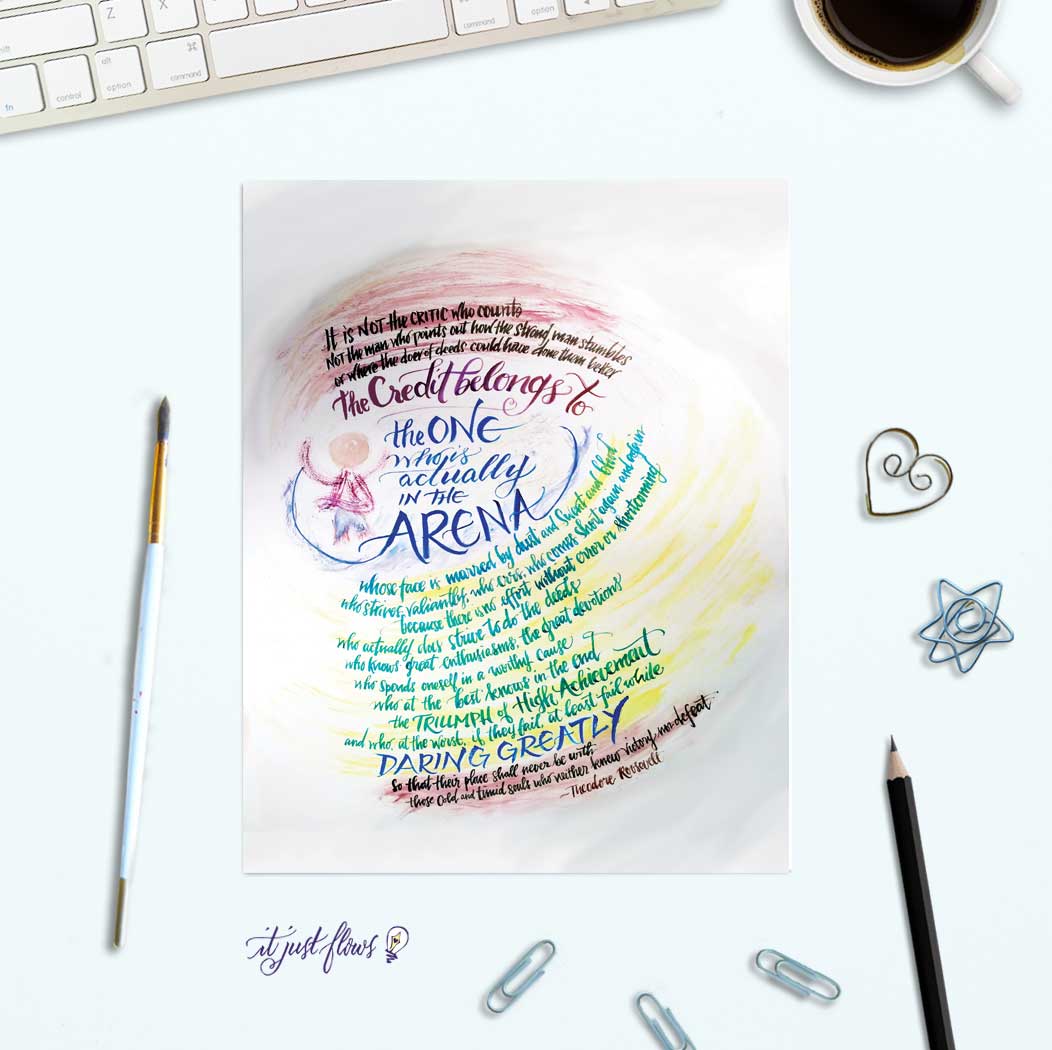 Z
X
alt
⌘
option
command
fn
control
option
command
command
option
It is NOT the CRITIC who counts
Not the man who points out how the strong man stumbles
or where the doer of deeds could have done them better
the Credit belongs to
the ONE
who is
actually
IN THE
ARENA
whose face is marred by dust and sweat and blood
who strives valiantly, who errs, who comes short again and again
because there is no effort without error or shortcoming
who actually does strive to do the deeds
who knows great enthusiasms, the great devotions
who spends oneself in a worthy cause
who at the best knows in the end
the TRIUMPH of High Achievement
and who, at the worst, if they fail, at least fail while
DARING GREATLY
So that their place shall never be with
those cold and timid souls who neither knew victory nor defeat
~Theodore Roosevelt
it just flows